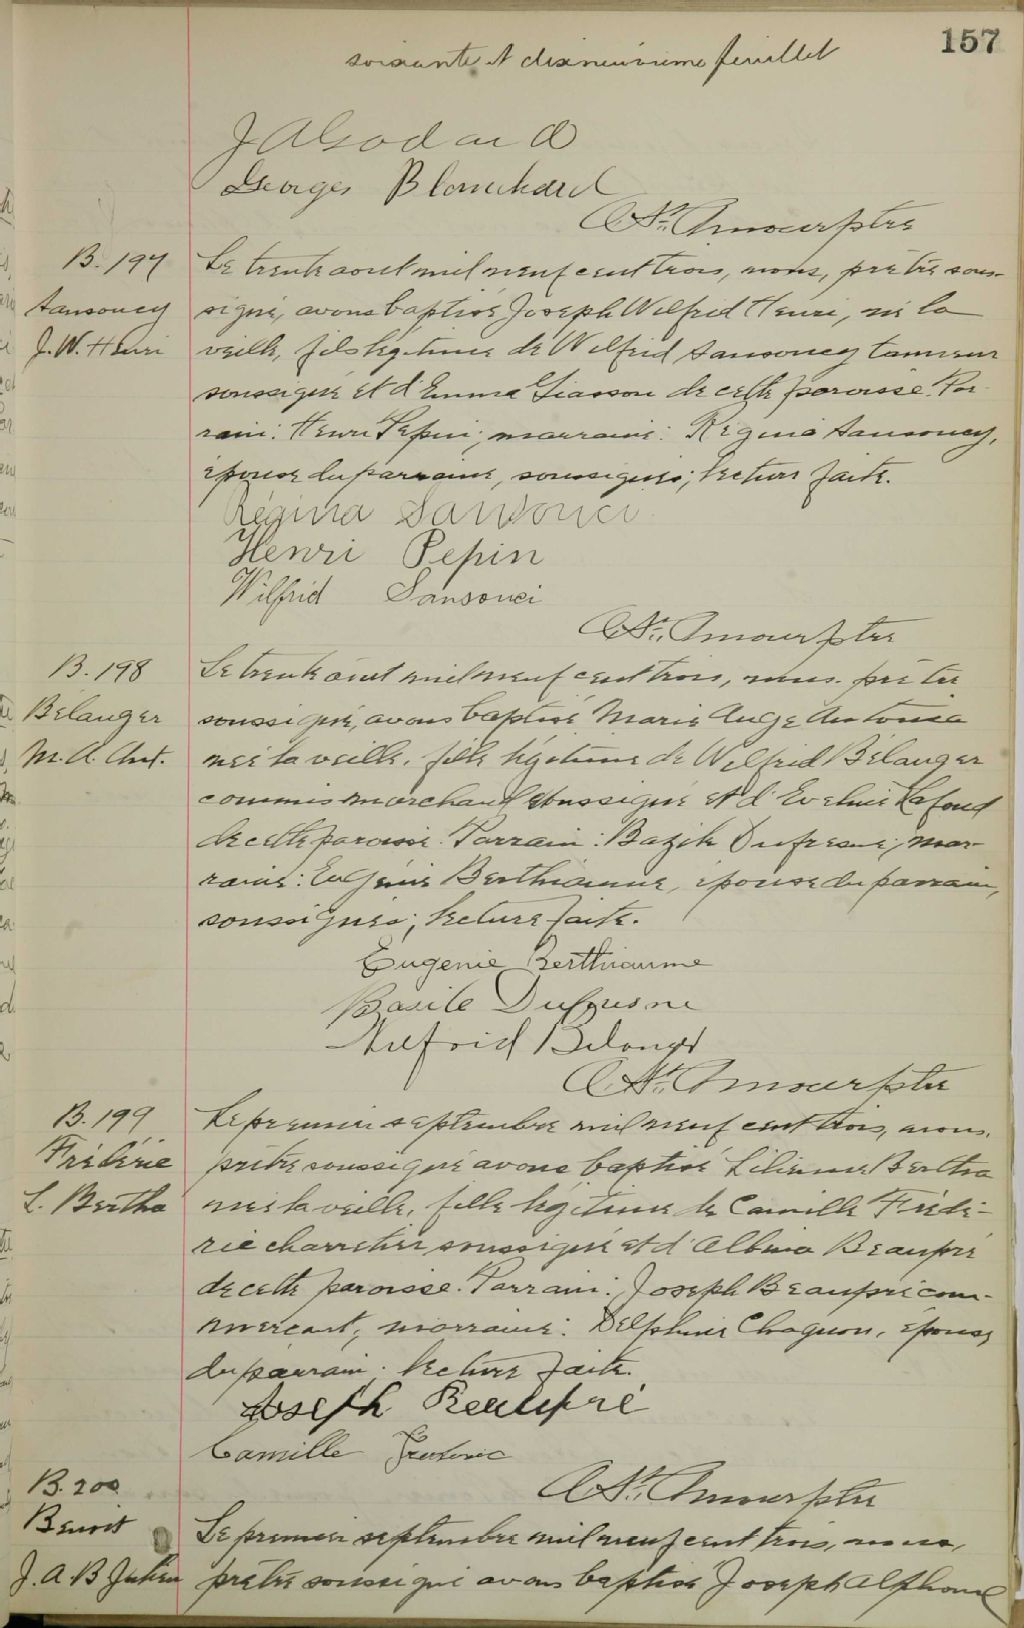 157
soixante et dixneuvième feuillet
J A Godard
Georges Blanchard
A St. Amour ptre
B. 197
Sansoucy
J. W. Henri
Le trente aout mil neuf cent trois, nous, prêtre sous-
signé, avons baptisé Joseph Wilfrid Henri, né la
veille, fils légitime de Wilfrid Sansoucy tanneur
soussigné et d'Emma Giasson de cette paroisse. Par-
rain: Henri Pepin; marraine: Régina Sansoucy,
épouse du parrain, soussignés; lecture faite.
Régina Sansouci
Henri Pepin
Wilfrid Sansouci
A St. Amour ptre
B. 198
Bélanger
M. A. Ant.
Le trente aout mil neuf cent trois, nous, prêtre
soussigné, avons baptisé Marie Ange Antonia
née la veille, fille légitime de Wilfrid Bélanger
commis marchand soussigné et d'Evelina Lafond
de cette paroisse. Parrain: Bazile Dufresne; mar-
raine: Eugénie Berthiaume, épouse du parrain,
soussignés; lecture faite.
Eugenie Berthiaume
Basile Dufresne
Wilfrid Belanger
A St. Amour ptre
B. 199
Fréderic
L. Bertha
Le premier septembre mil neuf cent trois, nous,
prêtre soussigné avons baptisé Lilianne Bertha
née la veille, fille légitime de Camille Fréde-
ric charretier soussigné et d'Albina Beaupré
de cette paroisse. Parrain: Joseph Beaupré com-
mercant; marraine: Delphine Chagnon, épouse
du parrain. lecture faite.
Joseph Beaupré
Camille Frederic
A St. Amour ptre
B. 200
Benoit
J. A. B Julien
Le premier septembre mil neuf cent trois, nous,
prêtre soussigné avons baptisé Joseph Alphonse